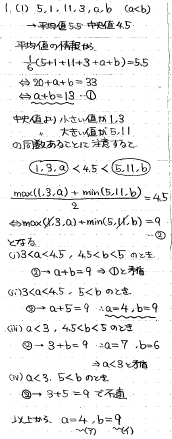 1. (1) 5, 1, 11, 3, a, b (a<b)
→ 平均値 5.5 中央値 4.5
平均値の情報から
1/6(5+1+11+3+a+b)=5.5
⇔ 20+a+b=33
⇔ a+b=13 …①
中央値より小さい値が1,3
〃 大きい値が5,11
の同数あることに注意すると
(1, 3, a) < 4.5 < (5, 11, b)
(max(1,3,a) + min(5,11,b))/2 = 4.5
⇔ max(1,3,a) + min(5,11,b) = 9 …②
となる
(i) 3<a<4.5, 4.5<b<5 のとき
② → a+b=9 ⇒ ①と矛盾
(ii) 3<a<4.5, 5<b のとき
② → a+5=9 ∴ a=4, b=9
(iii) a<3, 4.5<b<5 のとき
② → 3+b=9 ∴ a=7, b=6
⇒ a<3と矛盾
(iv) a<3, 5<b のとき
② → 3+5=9 で不適
以上から a=4, b=9
(ア) (イ)